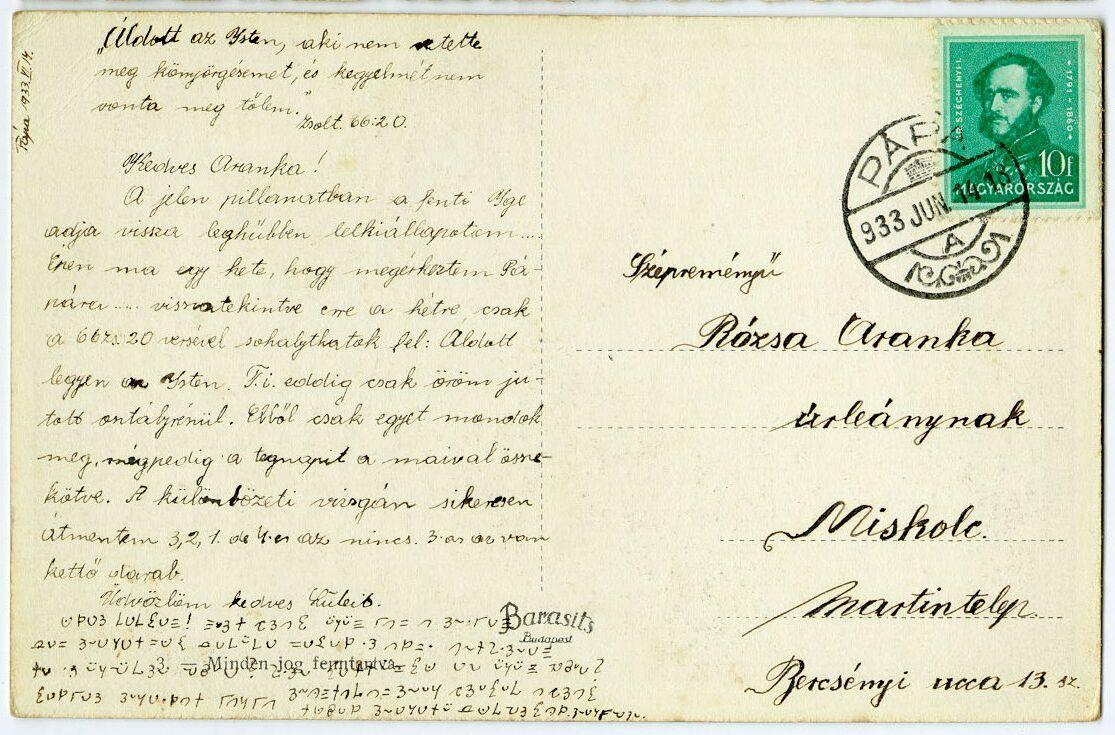 Pápa 1933.VI.14.
„Áldott az Isten, aki nem vetette
meg könyörgésemet, és kegyelmét nem
vonta meg tőlem."
Zsolt. 66:20.
Kedves Aranka!
A jelen pillanatban a fenti Ige
adja vissza leghűbben lelkiállapotom....
Épen ma egy hete, hogy megérkeztem Pá-
pára.... visszatekintve erre a hétre csak
a 66zs:20 versével sohajthatok fel: Áldott
legyen az Isten. T.i. eddig csak öröm ju-
tott osztályrészül. Ebből csak egyet mondok
meg, mégpedig a tegnapit a maival össze-
kötve. A különbözeti vizsgán sikeresen
átmentem 3, 2, 1. de 4-es az nincs. 3-as az van
kettő darab.
Üdvözlöm kedves
Barasits
Budapest
3. — Minden jog fenntartva.
GR. SZÉCHENYI I.
1791-1860
10f
MAGYARORSZÁG
PÁPA
933 JUN. 14. 18
A
Szépreményű
Rózsa Aranka
úrleánynak
Miskolc.
Martintelep.
Bercsényi ucca 13. sz.